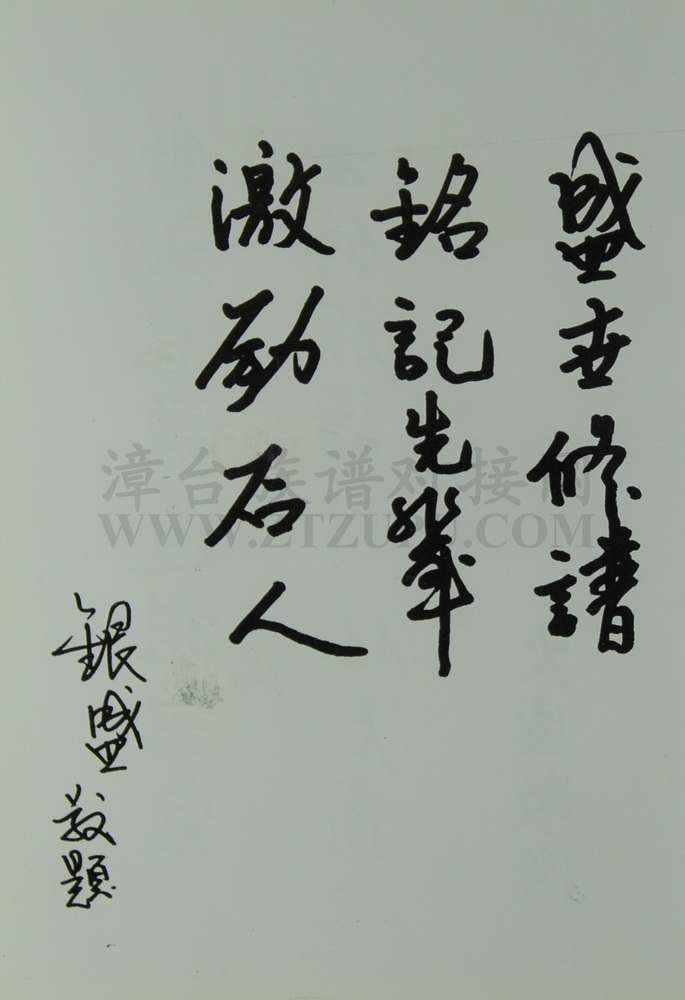 盛世修譜
銘記先輩
激励后人
銀盛敬題
漳台族谱对接网
WWW.ZTZUPU.COM